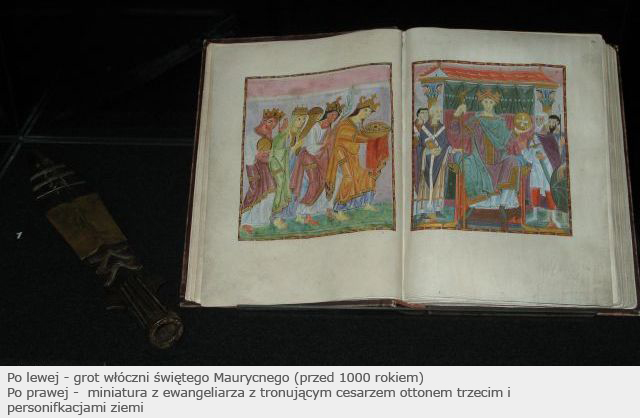 Po lewej - grot włóczni świętego Maurycnego (przed 1000 rokiem)
Po prawej -  miniatura z ewangeliarza z tronującym cesarzem ottonem trzecim i
personifkacjami ziemi